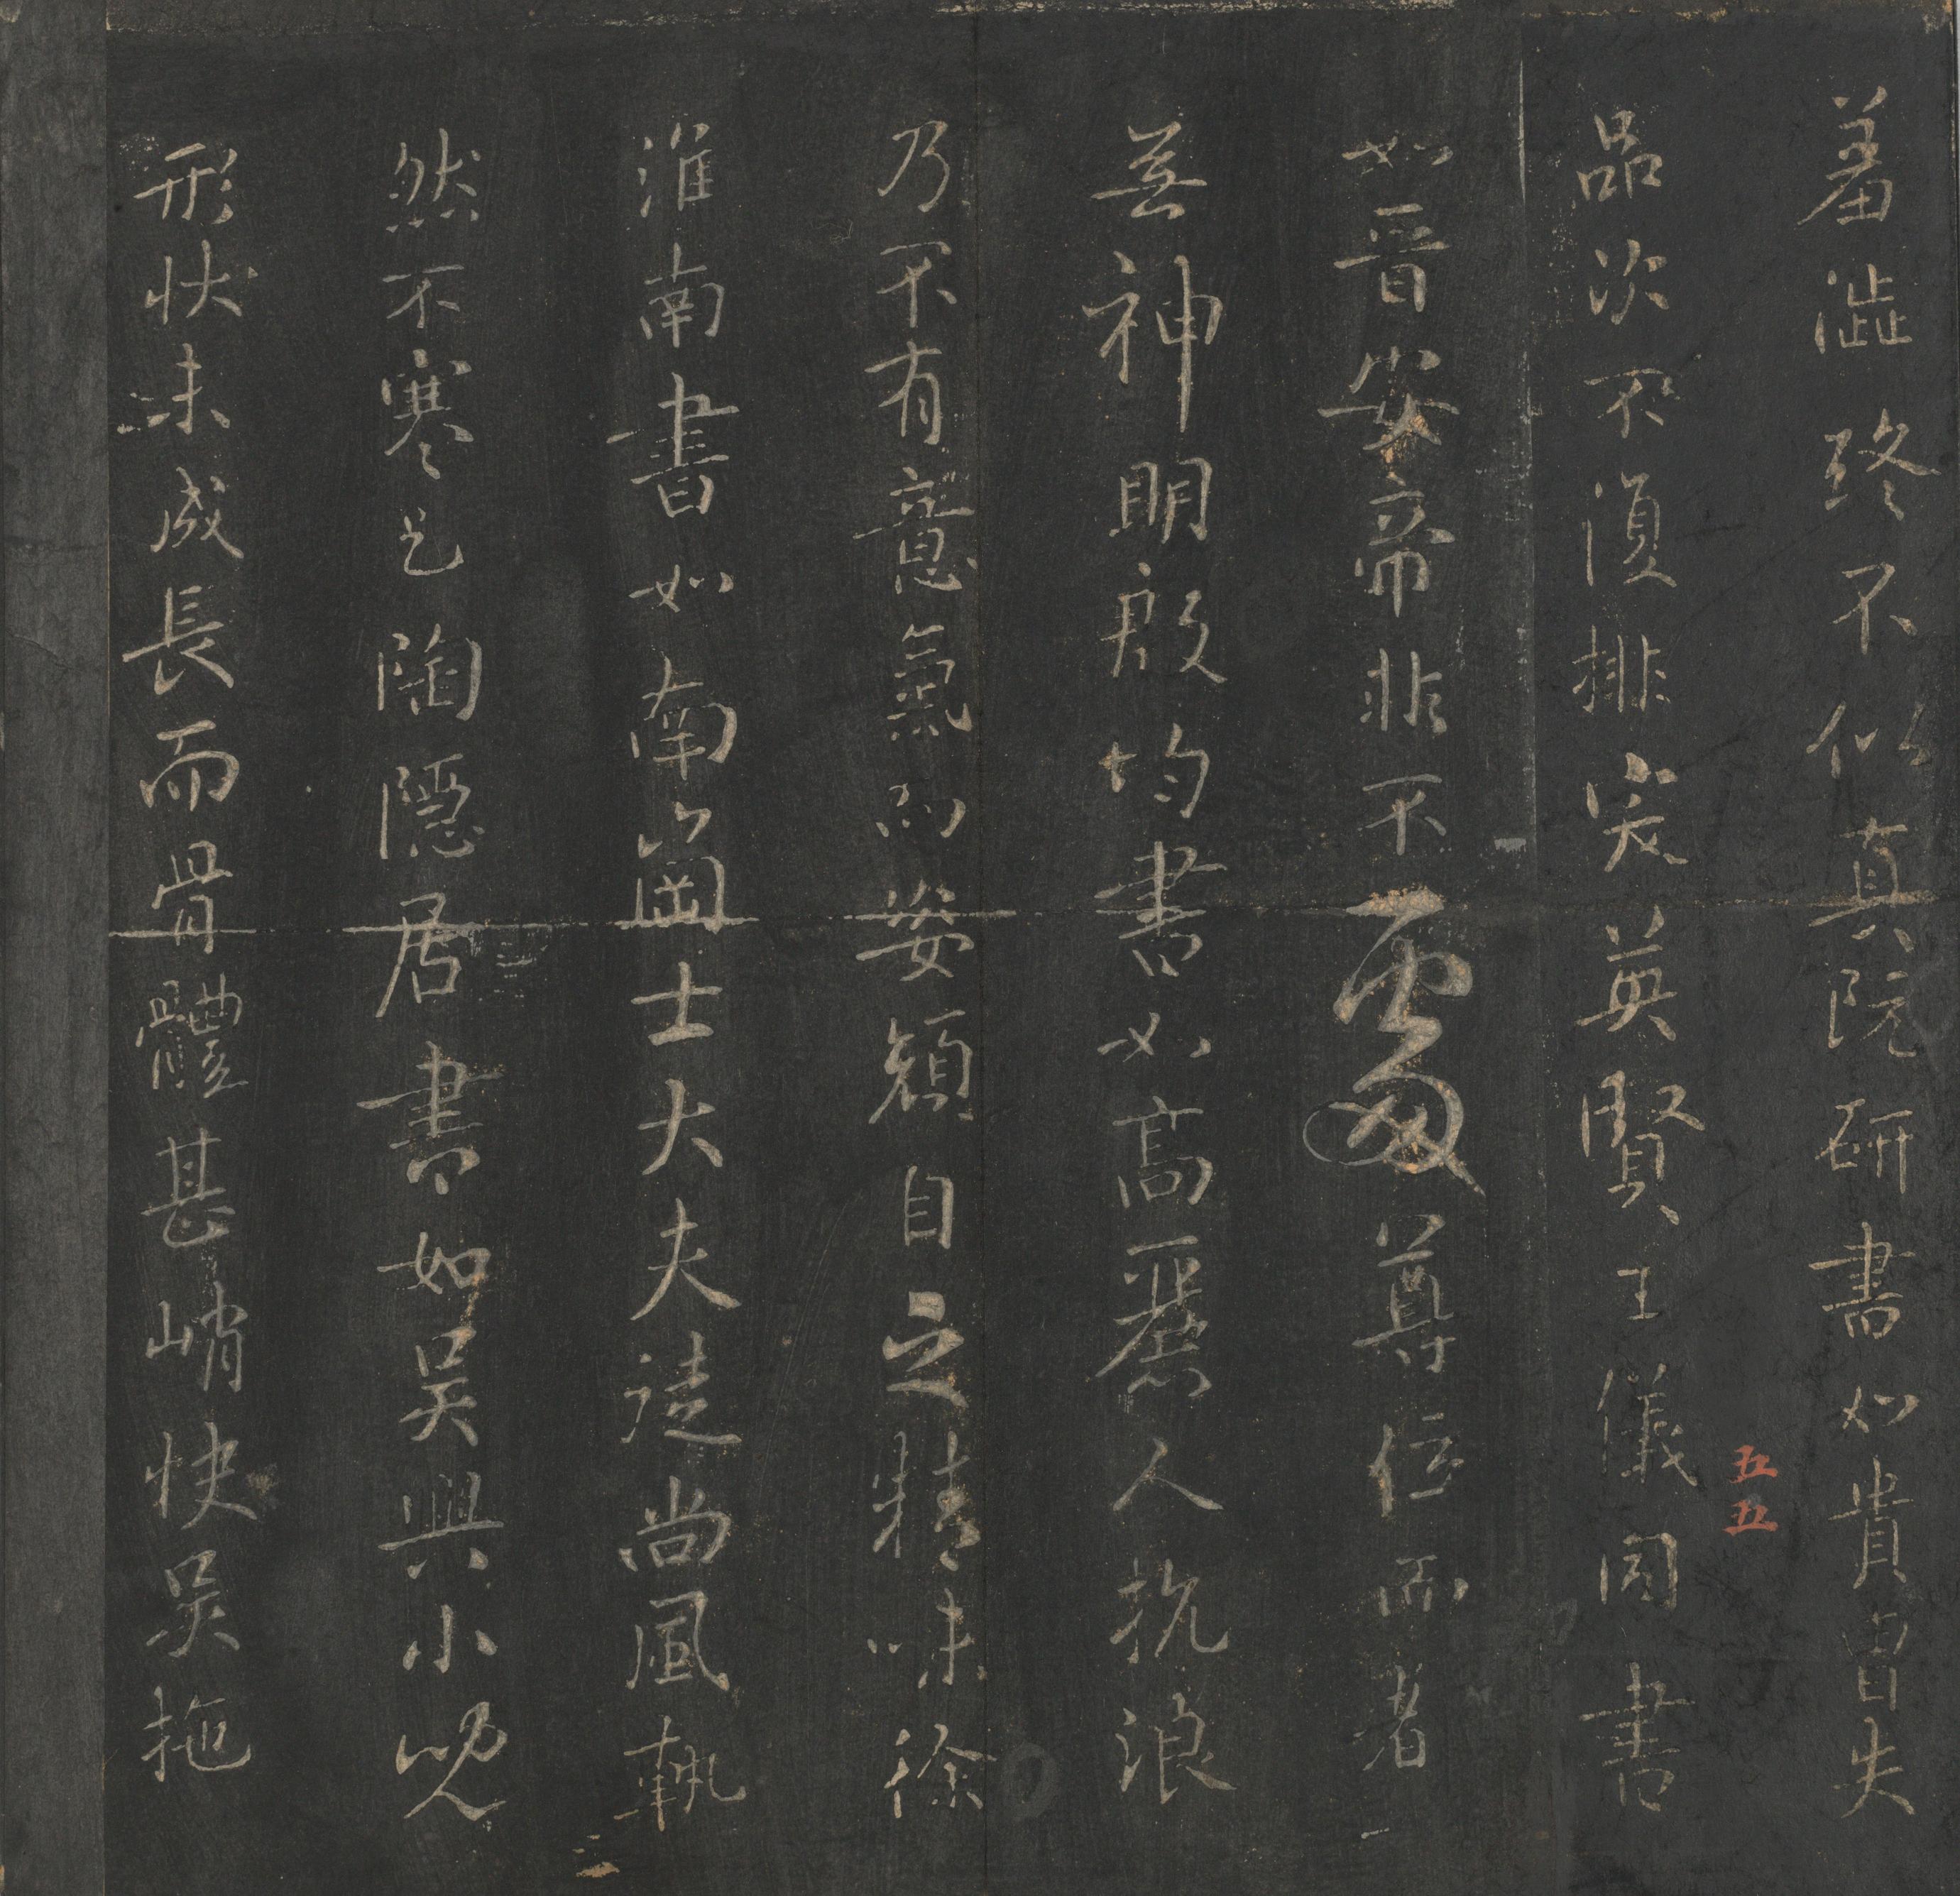 羞澁終不似真阮研書如貴胄失
品次不復排突英賢王儀同書
如晋安帝非不處尊位而者
無神明殷均書如高麗人抗浪
乃不有意氣而姿顔自之精味徐
淮南書如南崗士大夫徒尚風軌
然不寒乞陶隱居書如吳興小兒
形狀未成長而骨體甚峭快吳拖
五五